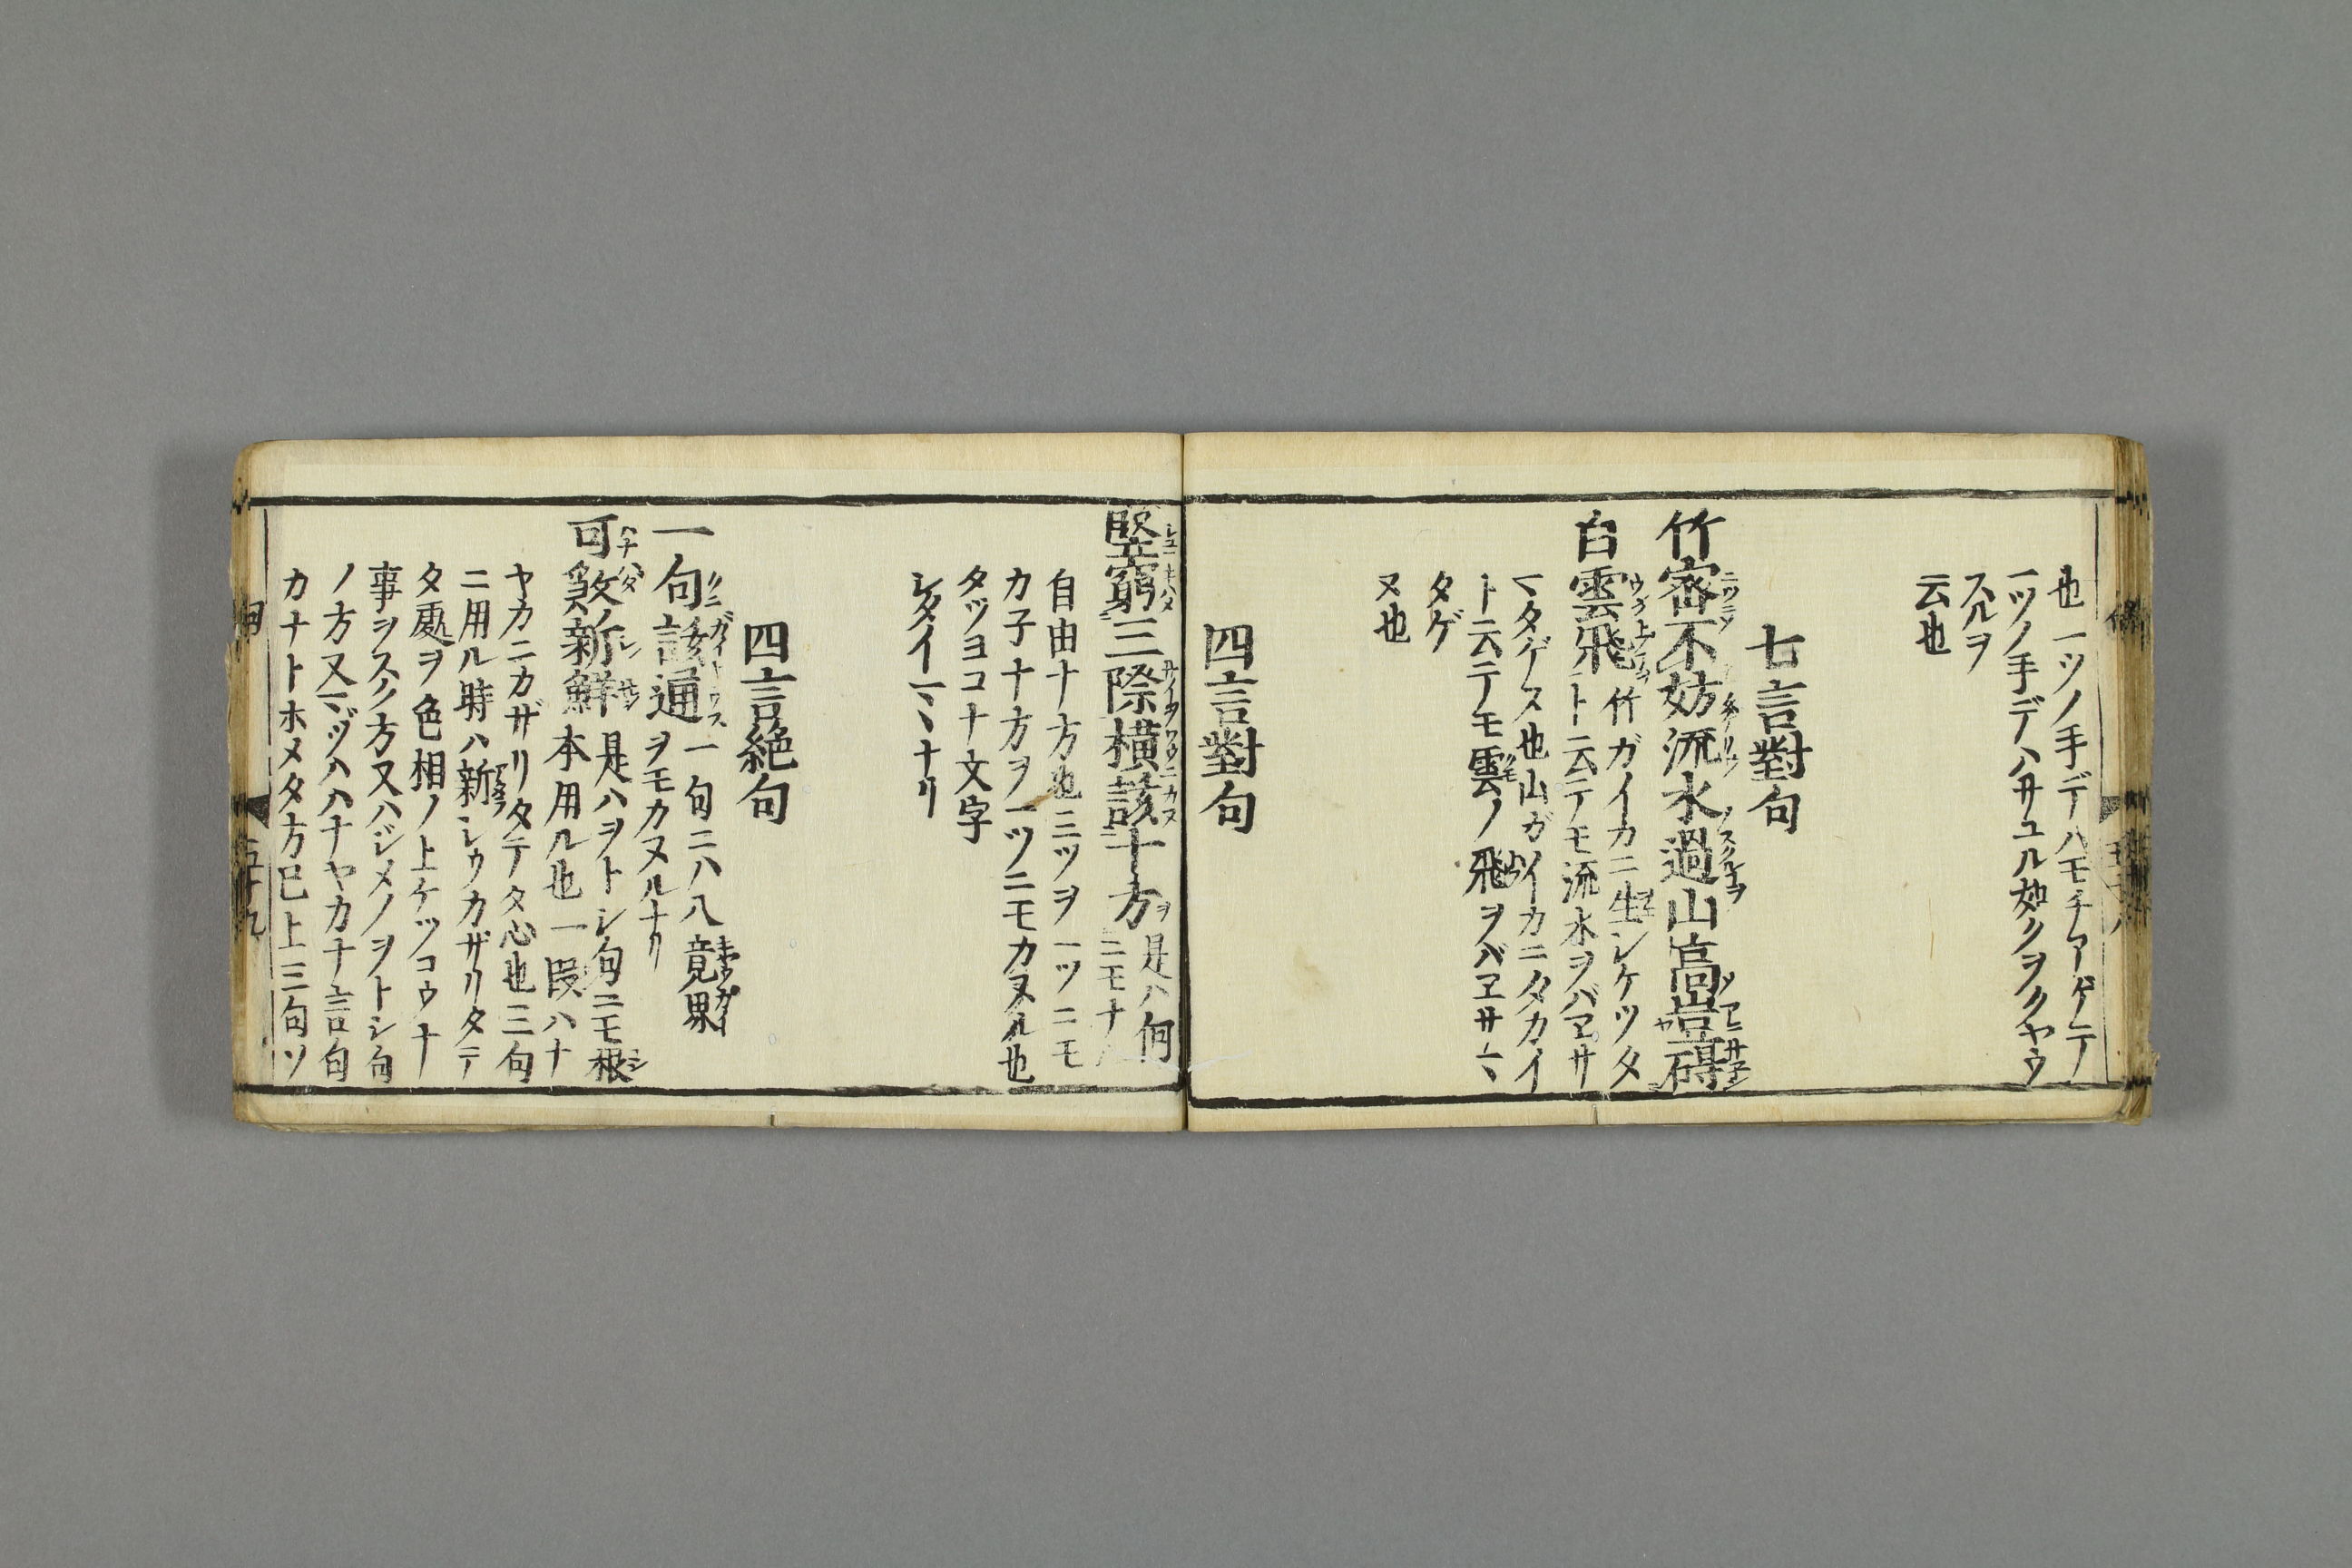 也一ツノ手デハモチアゲテ
一ツノ手デハサユル如クヲクヤウ
スルヲ
云也
七言對句
竹密不妨流水過山高豈碍
白雲飛
竹ガイカニ生シケツタ
ト云テモ流水ヲバヱサ
マタゲス也山ガイカニタカイ
ト云テモ雲ノ飛ヲバヱサマ
タゲ
ヌ也
四言對句
竪窮三際横該十方
是ハ何
ニモナ
自由十方也三ツヲ一ツニモ
カ子十方ヲ一ツニモカヌル也
タツヨコナ文字
レタイマヽナリ
四言絶句
一句該通
一句ニハ八竟界
ヲモカヌルナリ
可煞新鮮
是ハヲトシ句ニモ根
本用ル也一段ハナ
ヤカニカザリタテタ心也三句
ニ用ル時ハ新シウカザリタテ
タ處ヲ色相ノ上ケツコウナ
事ヲスク方又ハジメノヲトシ句
ノ方又マヅハハナヤカナ言句
カナトホメタ方已上三句ツ
五十九